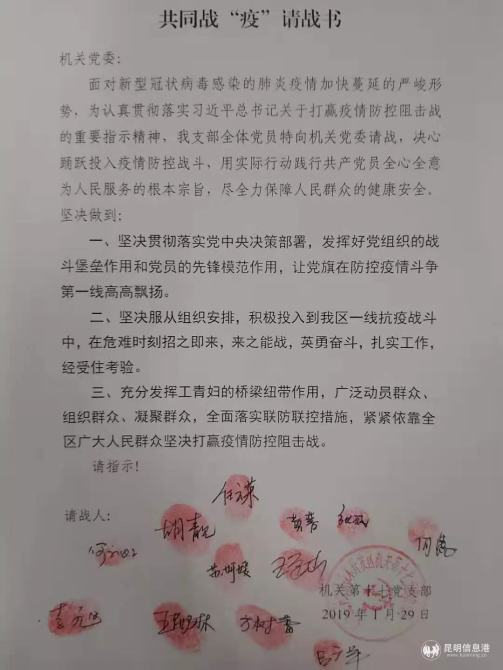 共同战“疫”请战书
机关党委：
面对新型冠状病毒感染的肺炎疫情加快蔓延的严峻形
势，为认真贯彻落实习近平总书记关于打赢疫情防控阻击战
的重要指示精神，我支部全体党员特向机关党委请战，决心
踊跃投入疫情防控战斗，用实际行动践行共产党员全心全意
为人民服务的根本宗旨，尽全力保障人民群众的健康安全。
坚决做到：
一、坚决贯彻落实党中央决策部署，发挥好党组织的战
斗堡垒作用和党员的先锋模范作用，让党旗在防控疫情斗争
第一线高高飘扬。
二、坚决服从组织安排，积极投入到我区一线抗疫战斗
中，在危难时刻招之即来，来之能战，英勇奋斗，扎实工作，
经受住考验。
三、充分发挥工青妇的桥梁纽带作用，广泛动员群众、
组织群众、凝聚群众，全面落实联防联控措施，紧紧依靠全
区广大人民群众坚决打赢疫情防控阻击战。
请指示！
请战人：
机关第十七党支部
2019年1月29日
昆明信息港